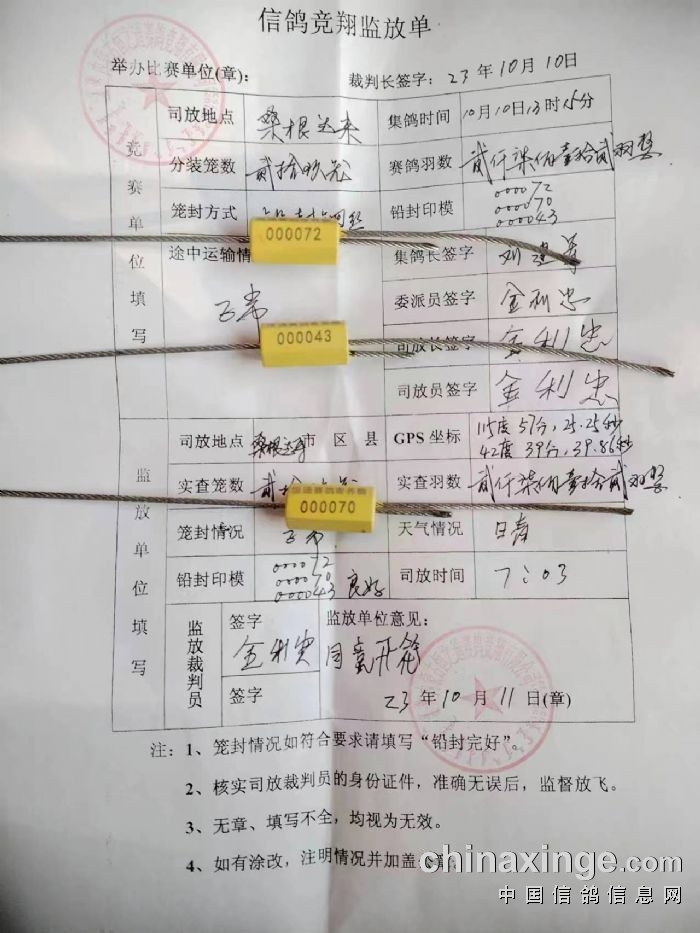 信鸽竞翔监放单
举办比赛单位(章): 裁判长签字: 23年10月10日
竞赛单位填写
司放地点 桑根达来 集鸽时间 10月10日13时15分
分装笼数 贰拾玖笼 赛鸽羽数 贰仟柒佰壹拾贰羽整
笼封方式 铅封印模 000072
000070
000043
途中运输情 正常 集鸽长签字
000072
委派员签字 金利忠
000043
司放长签字 金利忠
司放员签字 金利忠
监放单位填写
司放地点 桑根达来 市 区 县 GPS 坐标 115度57分,25.25秒
42度39分,39.86秒
实查笼数 贰拾 实查羽数 贰仟柒佰壹拾贰羽整
000070
笼封情况 正常 天气情况 日睛
铅封印模 000072
000070
000043 良好 司放时间 7:03
监放裁判员
签字 监放单位意见:
金利忠 同意开笼
签字 23年10月11日(章)
注: 1、笼封情况如符合要求请填写“铅封完好”。
2、核实司放裁判员的身份证件，准确无误后，监督放飞。
3、无章、填写不全，均视为无效。
4、如有涂改，注明情况并加盖
chinaxinge.com
中国信鸽信息网